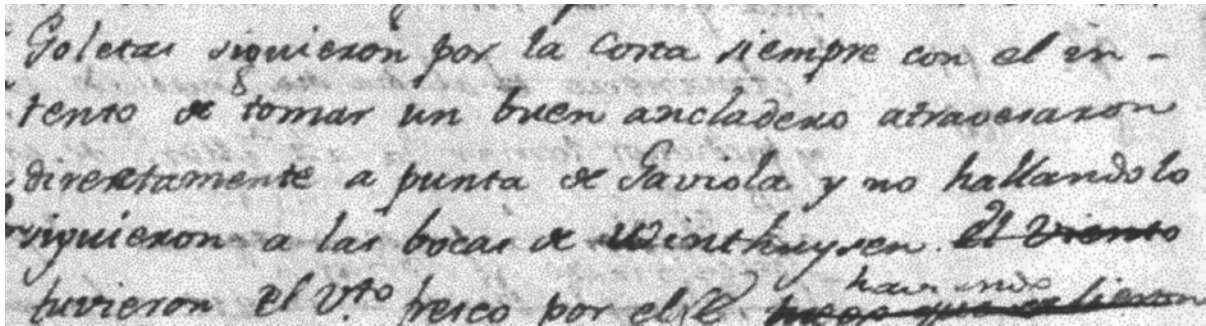 Goletas siguieron por la costa siempre con el in-
tento de tomar un buen ancladero atravesaron
directamente a punta de Gaviola y no hallandolo
siguieron a las bocas de Winthuysen. el viento
tuvieron el V.to fresco por el E haviendo